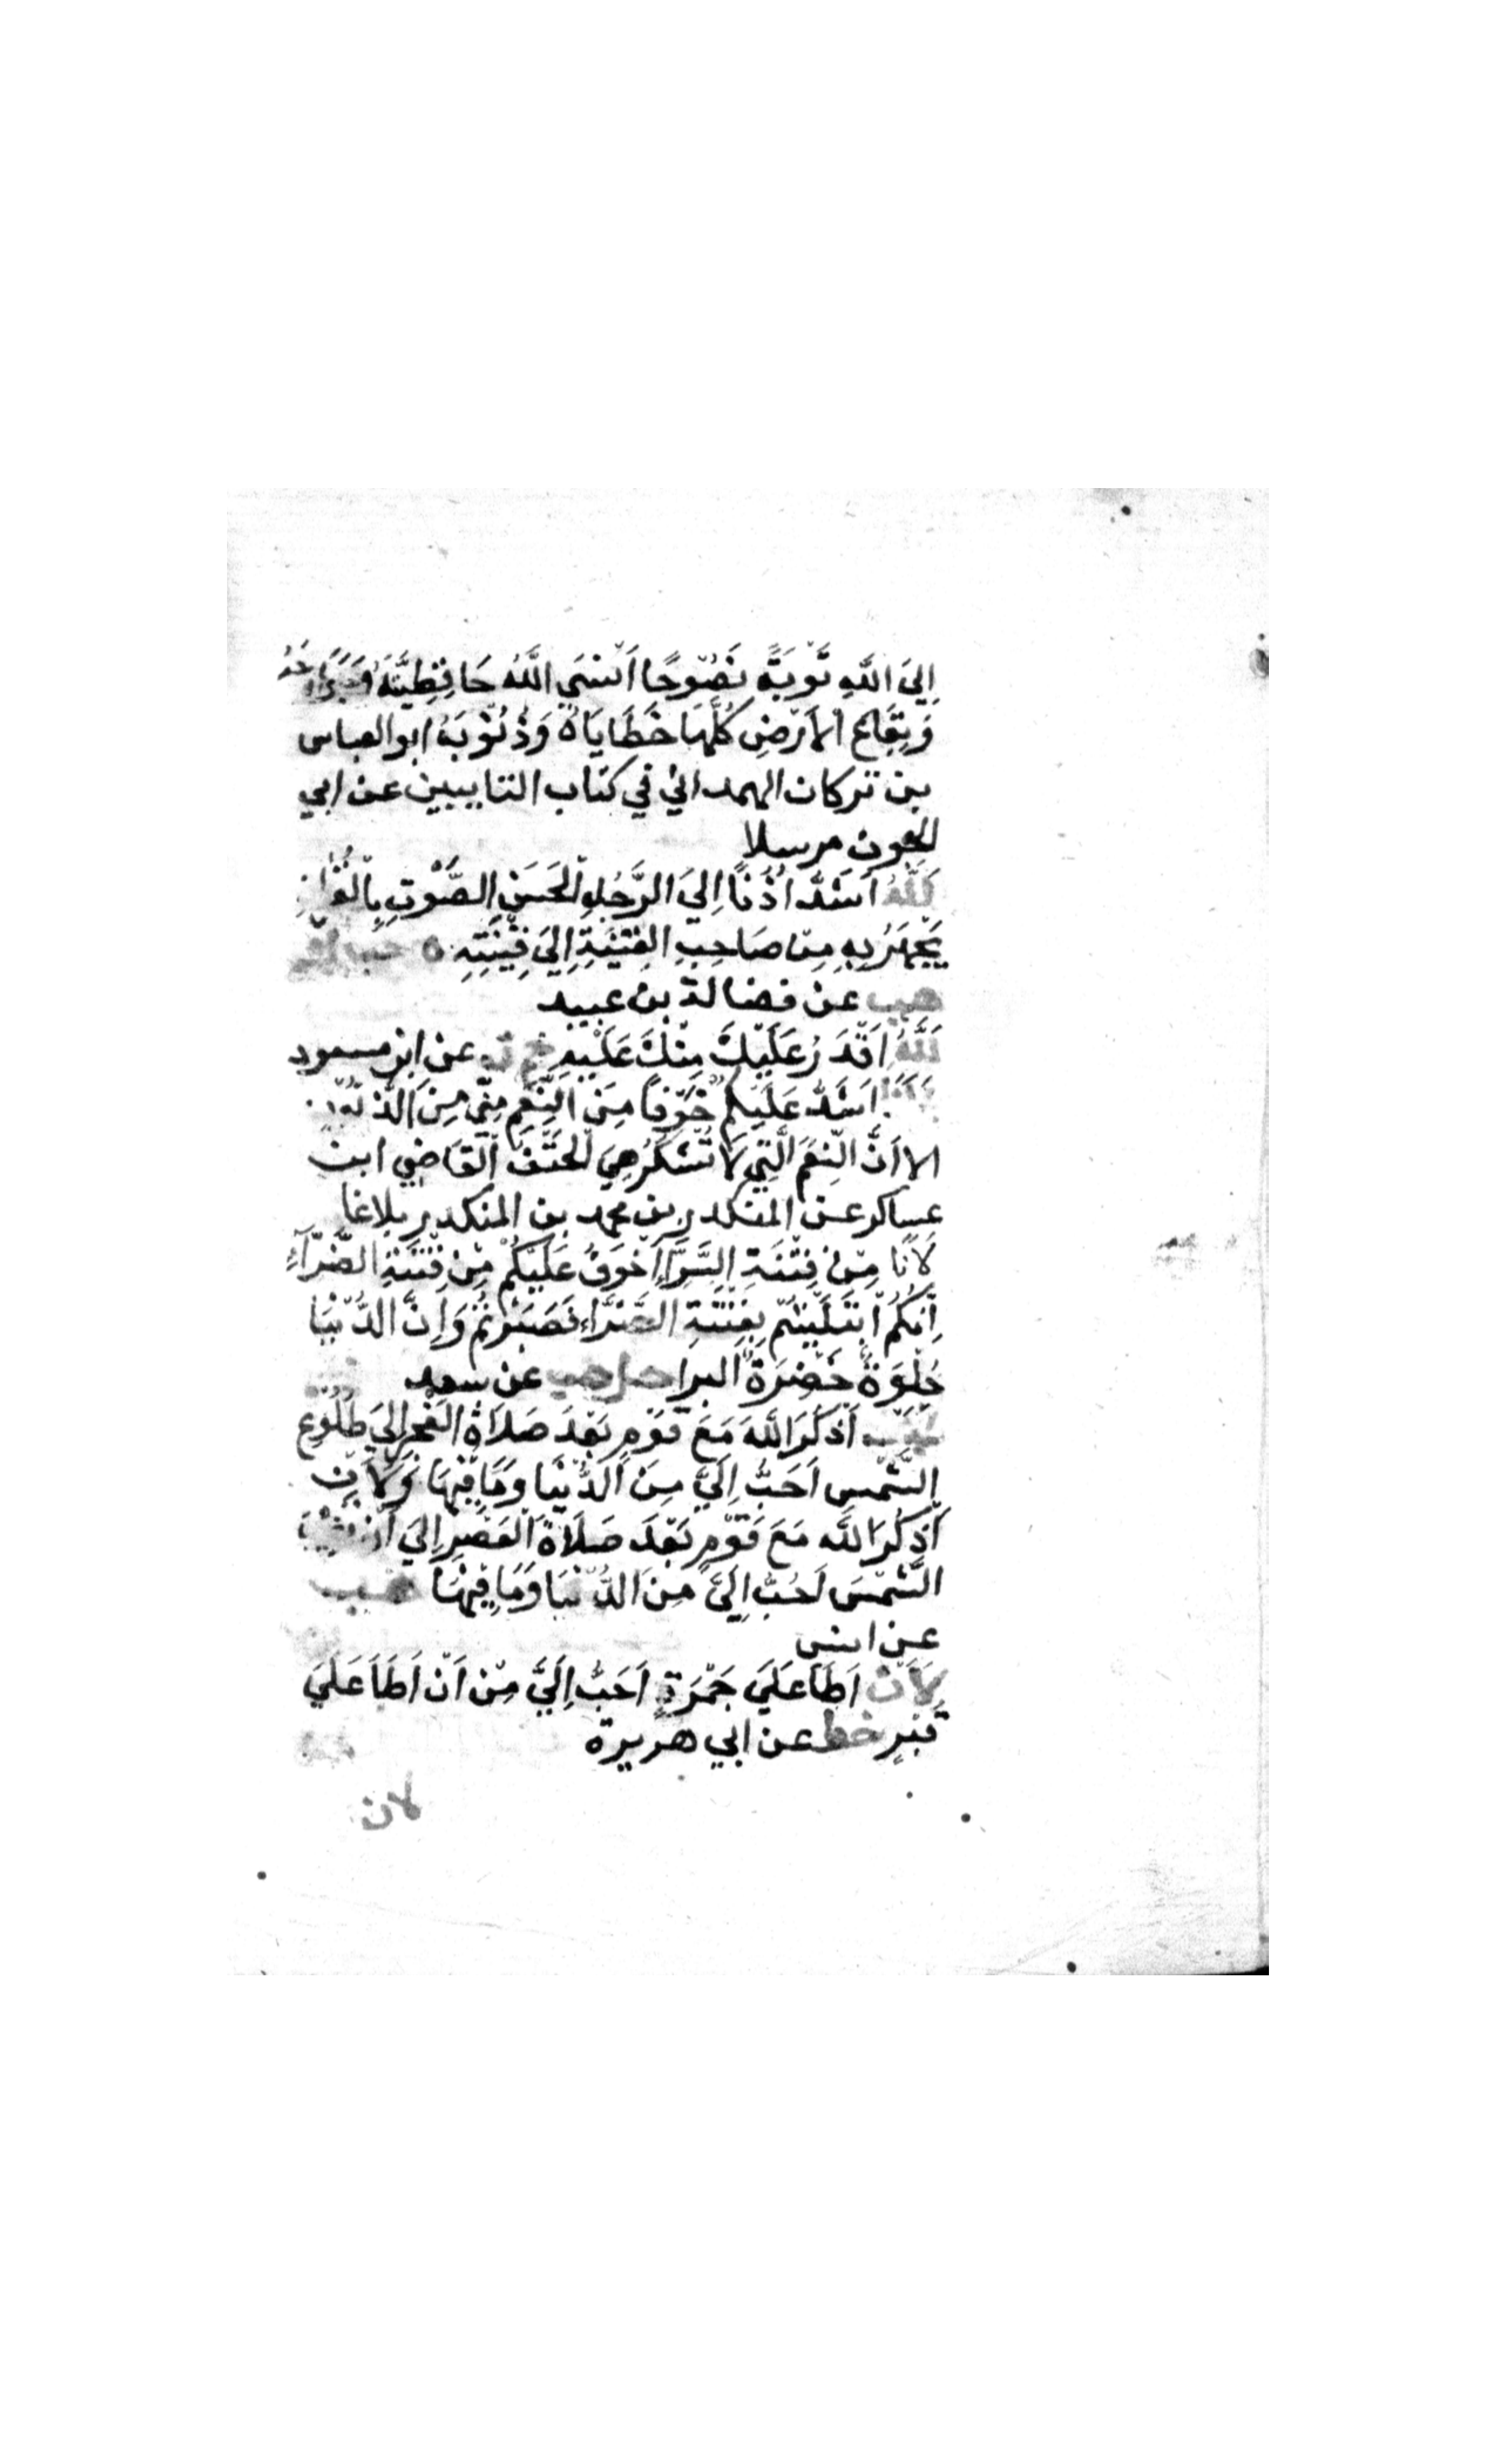 اِلَى اللَّهِ تَوْبَةً نَصُوْحًا اَنْسَي اللَّهُ حَافِظِيَّهُ وَجَوَارِحَهُ
وَبِقَاعَ الْاَرْضِ كُلَّهَا خَطَايَاهُ وَذُنُوْبَهُ ابو العباس
بن تركان الهمداني في كتاب التايبين عن ابي
الجون مرسلا
لَلَّهُ اَشَدُّ اُذُنًا اِلَيَ الرَّجُلِ الْحَسَنِ الصَّوْتِ بِالْقُرْاٰنِ
يَجْهَرُ بِهِ مِنْ صَاحِبِ الْقَيْنَةِ اِلَيَ قَيْنَتِهِ ه حب
هب عن فضالة بن عبيد
لَلَّهُ اَقْدَرُ عَلَيْكَ مِنْكَ عَلَيْهِ عن ابن مسعود
اَشَدُّ عَلَيْكُمْ خَوْفًا مِنَ النِّعَمِ مِنِّي مِنَ الذُّنُوْبِ
الا اَنَّ النِّعَمَ الَّتِي لَا تُشْكَرُ هِيَ الْحَتْفُ الْقَاضِي ابن
عساكر عن المنكدر بن محمد بن المنكدر بلاغا
لَاَنَا مِنْ فِتْنَةِ السَّرَّاءِ اَخْوَفُ عَلَيْكُمْ مِنْ فِتْنَةِ الضَّرَّآءِ
اِنَّكُمُ ابْتُلِيْتُمْ بِفِتْنَةِ الضَّرَّاءِ فَصَبَرْتُمْ وَاِنَّ الدُّنْيَا
حُلْوَةٌ خَضِرَةٌ البزار حل هب عن سعد
اَذْكُرَ اللَّهَ مَعَ قَوْمٍ بَعْدَ صَلَاةِ الْفَجْرِ اِلَيَ طُلُوْعِ
الشَّمْسِ اَحَبُّ اِلَيَّ مِنَ الدُّنْيَا وَمَا فِيْهَا وَلَاَنْ
اَذْكُرَ اللَّه مَعَ قَوْمٍ بَعْدَ صَلَاةِ الْعَصْرِ اِلَيَ اَنْ تَغِيْبَ
الشَّمْسُ اَحَبُّ اِلَيَّ مِنَ الدُّنْيَا وَمَا فِيْهَا هب
عن انس
لَاَنْ اَطَاَ عَلَيَ جَمْرَةٍ اَحَبُّ اِلَيَّ مِنْ اَنْ اَطَاَ عَلَيَ
قَبْرٍ خط عن ابي هريرة
لان